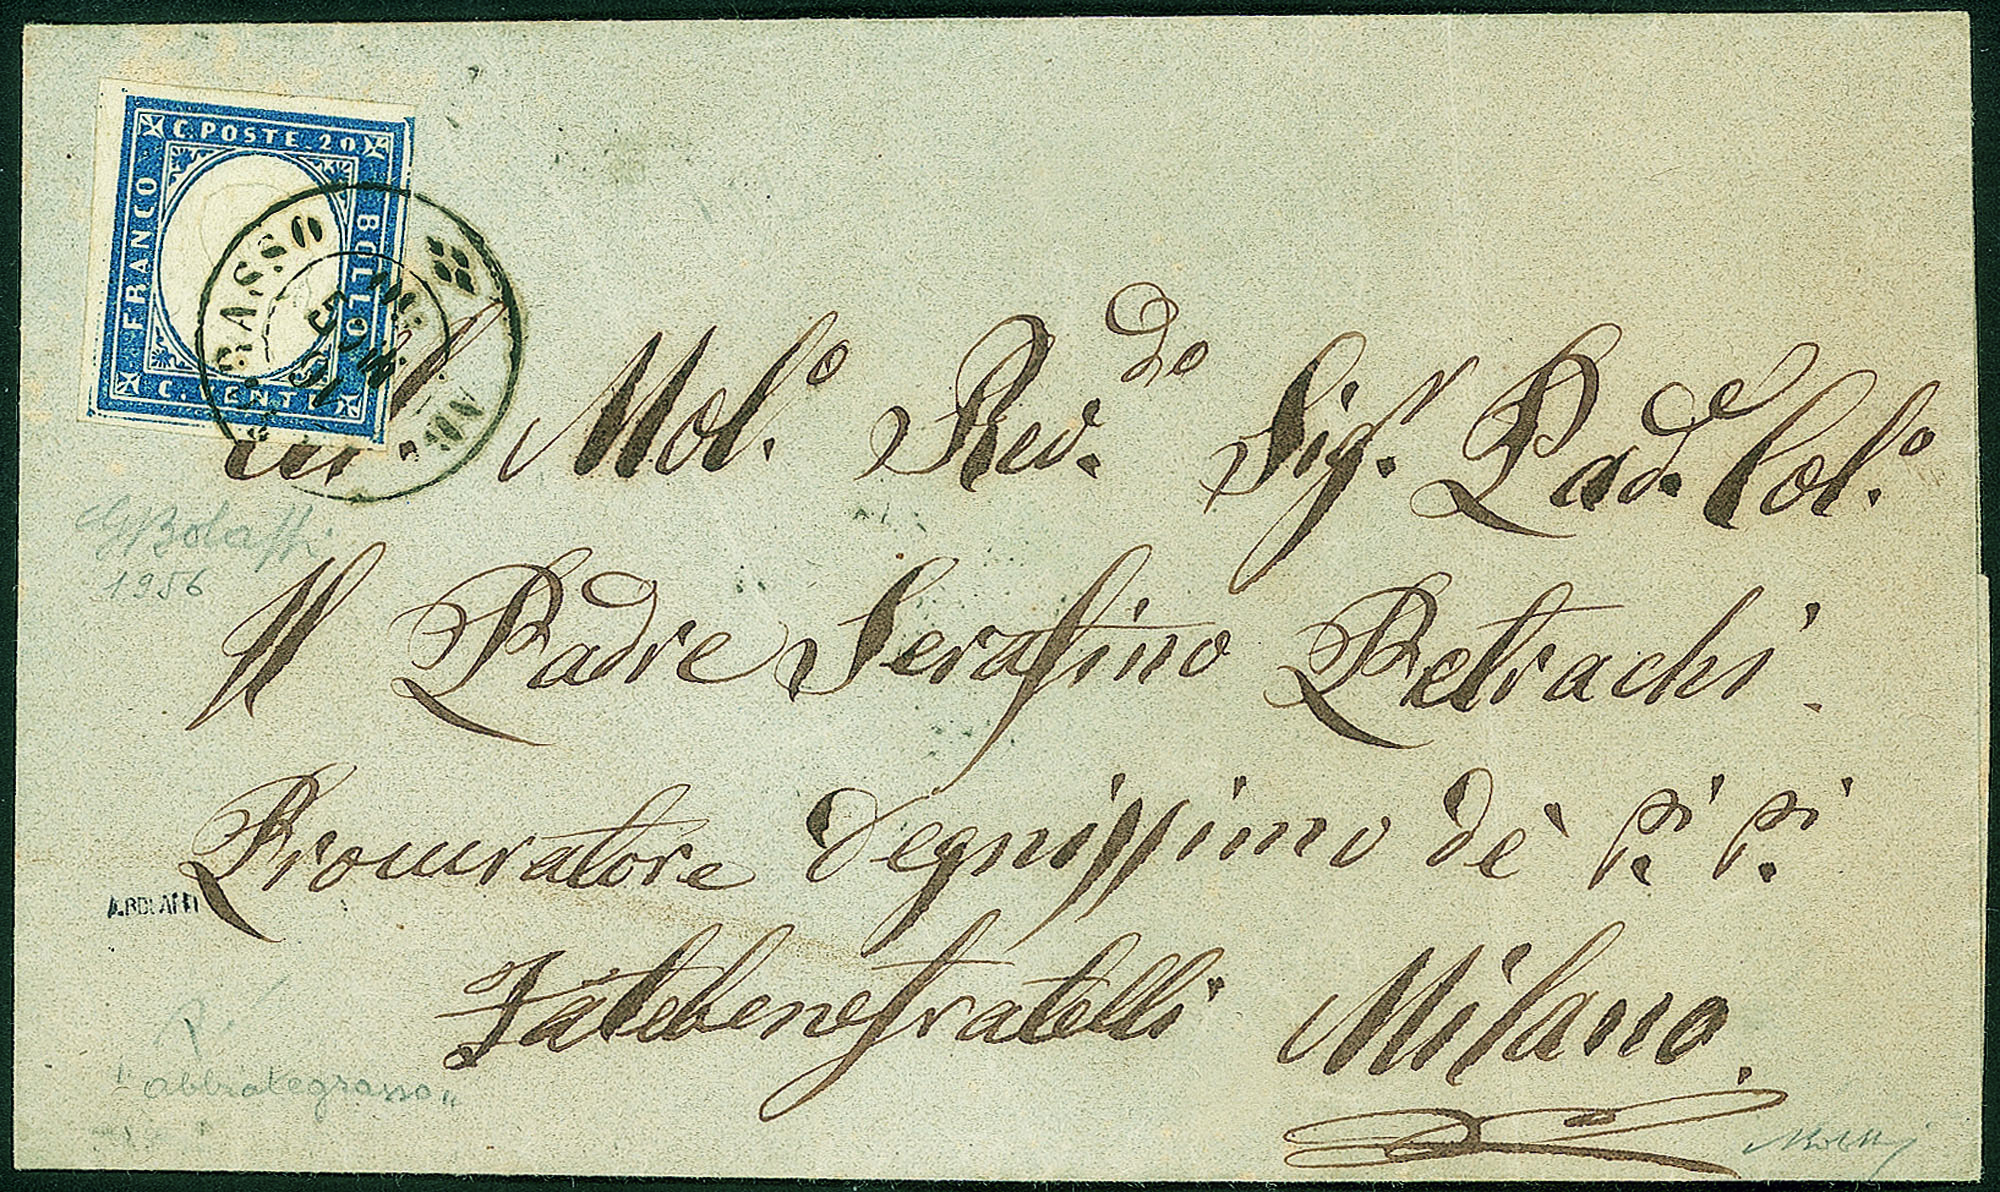 C. POSTE. 20
FRANCO
BOLLO
C. VENTI
Al Mol.º Rev.do Sig.r Pad.e Col.º
Il Padre Serafino Petrachi.
Procuratore degnissimo dè P.i P.i
Fatebenefratelli Milano.
1956
A.BOLAFFI
"abbiategrasso"